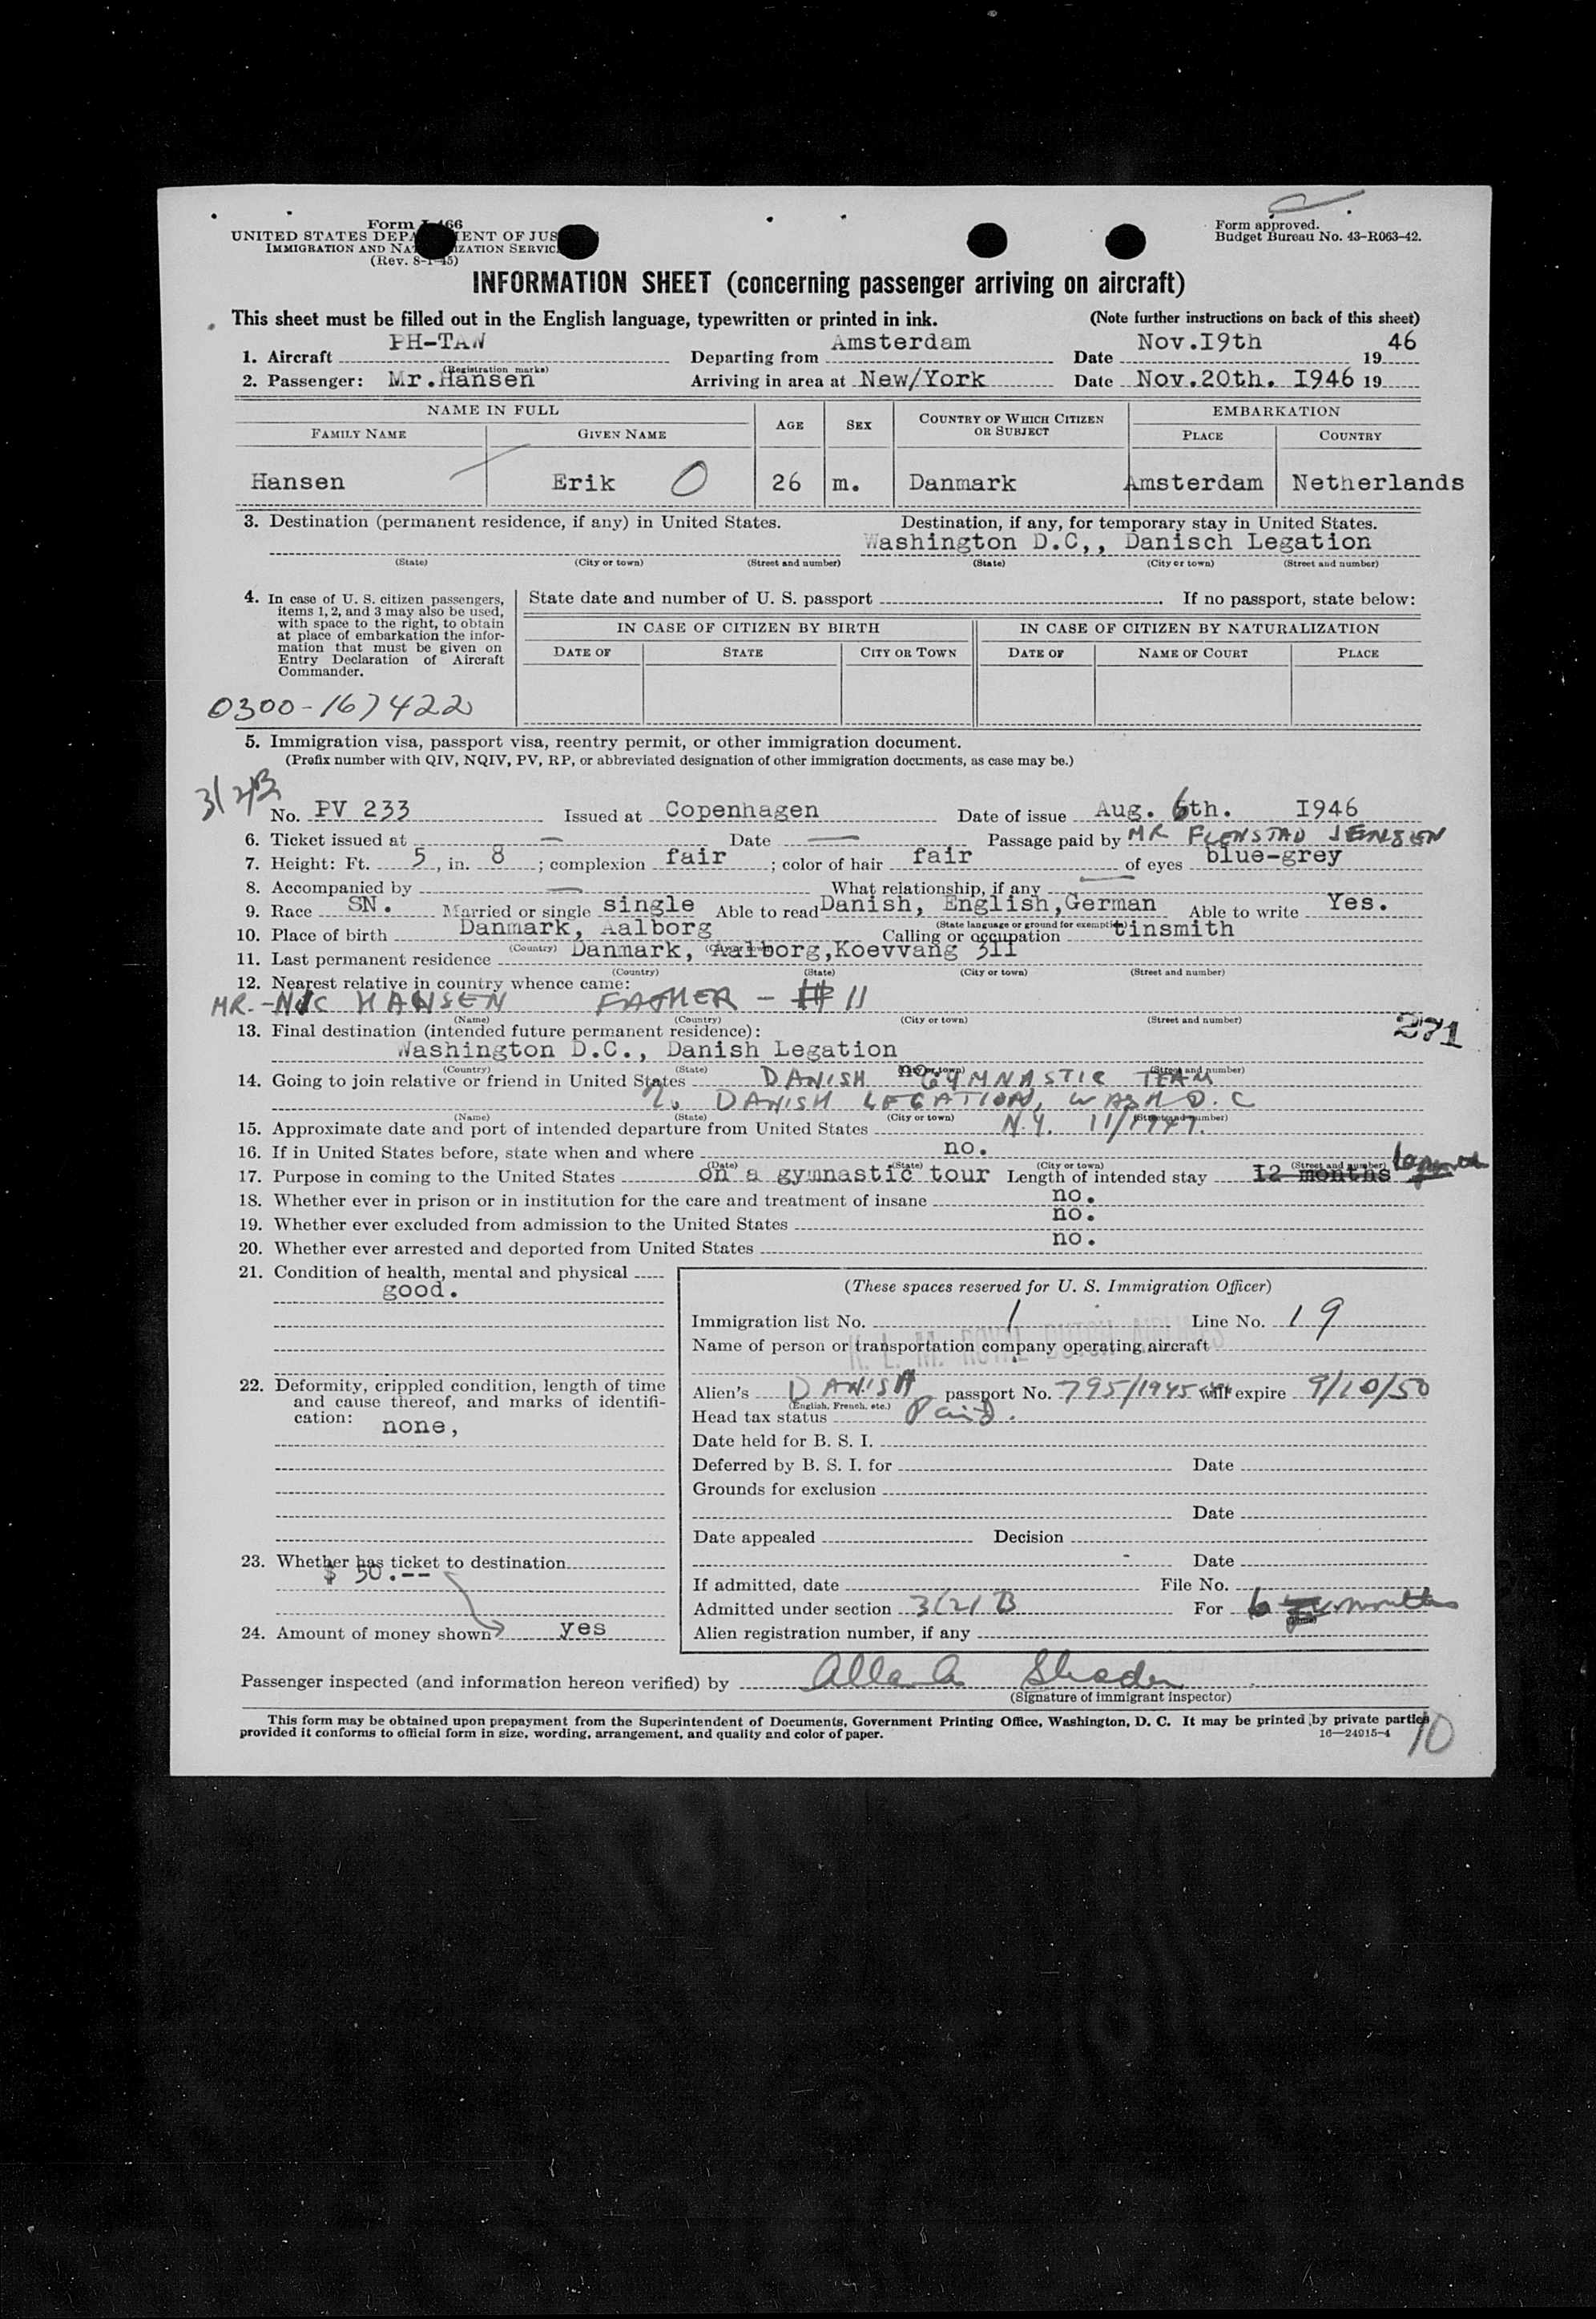 Form I-466
UNITED STATES DEPARTMENT OF JUSTICE
IMMIGRATION AND NATURALIZATION SERVICE
(Rev. 8-1-45)
Form approved.
Budget Bureau No. 43-R063-42.
INFORMATION SHEET (concerning passenger arriving on aircraft)
This sheet must be filled out in the English language, typewritten or printed in ink. (Note further instructions on back of this sheet)
1. Aircraft PH-TAW Departing from Amsterdam Date Nov.I9th 19 46
(Registration marks)
2. Passenger: Mr.Hansen Arriving in area at New/York Date Nov.20th. I946 19
NAME IN FULL AGE SEX COUNTRY OF WHICH CITIZEN OR SUBJECT EMBARKATION
FAMILY NAME GIVEN NAME PLACE COUNTRY
Hansen Erik O 26 m. Danmark Amsterdam Netherlands
3. Destination (permanent residence, if any) in United States. Destination, if any, for temporary stay in United States.
Washington D.C,, Danisch Legation
(State) (City or town) (Street and number) (State) (City or town) (Street and number)
4. In case of U. S. citizen passengers, items 1, 2, and 3 may also be used, with space to the right, to obtain at place of embarkation the information that must be given on Entry Declaration of Aircraft Commander.
State date and number of U. S. passport . If no passport, state below:
IN CASE OF CITIZEN BY BIRTH IN CASE OF CITIZEN BY NATURALIZATION
DATE OF STATE CITY OR TOWN DATE OF NAME OF COURT PLACE
0300-167422
5. Immigration visa, passport visa, reentry permit, or other immigration document.
(Prefix number with QIV, NQIV, PV, RP, or abbreviated designation of other immigration documents, as case may be.)
3(2)B
No. PV 233 Issued at Copenhagen Date of issue Aug. 6th. I946
6. Ticket issued at — Date — Passage paid by MR FLENSTAD JENSEN
7. Height: Ft. 5, in. 8; complexion fair; color of hair fair of eyes blue-grey
8. Accompanied by — What relationship, if any —
9. Race SN. Married or single single Able to read Danish, English,German Able to write Yes.
(State language or ground for exemption)
10. Place of birth Danmark, Aalborg Calling or occupation tinsmith
(Country) (City or town)
11. Last permanent residence Danmark, Aalborg,Koevvang 3II
(Country) (State) (City or town) (Street and number)
12. Nearest relative in country whence came:
MR.-NIC HANSEN FATHER - # 11
(Name) (Country) (City or town) (Street and number)
271
13. Final destination (intended future permanent residence):
Washington D.C., Danish Legation
(Country) (State) (City or town) (Street and number)
14. Going to join relative or friend in United States no DANISH GYMNASTIC TEAM
% DANISH LEGATION, WASH D.C
(Name) (State) (City or town) (Street and number)
15. Approximate date and port of intended departure from United States N.Y. 11/1947.
16. If in United States before, state when and where no.
(Date) (State) (City or town) (Street and number)
17. Purpose in coming to the United States on a gymnastic tour Length of intended stay I2 months
18. Whether ever in prison or in institution for the care and treatment of insane no.
19. Whether ever excluded from admission to the United States no.
20. Whether ever arrested and deported from United States no.
21. Condition of health, mental and physical
good.
22. Deformity, crippled condition, length of time and cause thereof, and marks of identification:
none,
23. Whether has ticket to destination
$ 50.--
24. Amount of money shown yes
(These spaces reserved for U. S. Immigration Officer)
Immigration list No. 1 Line No. 19
Name of person or transportation company operating aircraft
K. L. M. ROYAL DUTCH AIRLINES
Alien's DANISH passport No. 795/1945 will expire 9/10/50
(English, French, etc.)
Head tax status Paid.
Date held for B. S. I.
Deferred by B. S. I. for Date
Grounds for exclusion
Date
Date appealed Decision
Date
If admitted, date File No.
Admitted under section 3(2)B For 6 months
(Time)
Alien registration number, if any
Passenger inspected (and information hereon verified) by
(Signature of immigrant inspector)
This form may be obtained upon prepayment from the Superintendent of Documents, Government Printing Office, Washington, D. C. It may be printed by private parties
provided it conforms to official form in size, wording, arrangement, and quality and color of paper. 16—24915-4
10